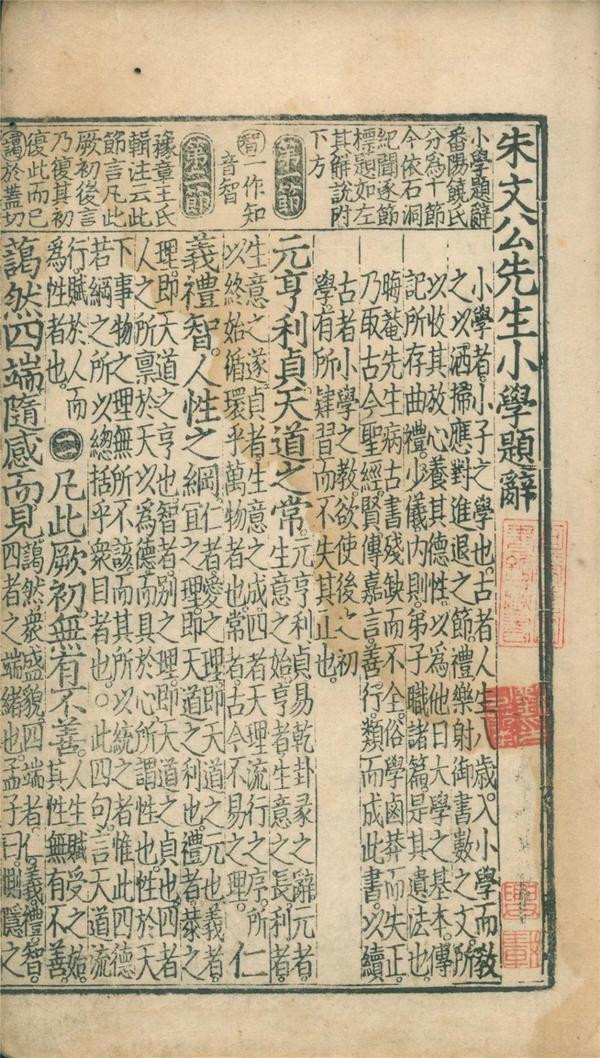 朱文公先生小學題辭
小學題辭
番陽饒氏
分為十節
今依石洞
紀聞逐節
標題如左
其解說附
下方
第一節
智一作知
音智
第二節
豫章王氏
輯注云此
節言凡此
厥初後言
乃復其初
復此而已
藹於蓋切
小學者。小子之學也。古者人生八歲。入小學而教
之以洒掃應對進退之節。禮樂射御書數之文。所
以收其放心。養其德性。以為他日大學之基本。傳
記所存曲禮。少儀。内則。弟子職諸篇。是其遺法也。
晦菴先生病古書殘缺而不全。俗學鹵莽而失正。
乃取古今聖經賢傳嘉言善行。類而成此書。以續
古者小學之教。欲使後之初
學有所肄習而不失其正也。
元亨利貞。天道之常。
元亨利貞。易乾卦彖之辭。元者
生意之始。亨者生意之長。利者
生意之遂。貞者生意之成。四者天理流行之序。所
以終始循環乎萬物者也。常者古今不易之理。
仁
義禮智。人性之綱。
仁者愛之理。即天道之元也。義者
宜之理。即天道之利也。禮者恭之
理。即天道之亨也。智者別之理。即天道之貞也。四者
人之所禀於天以為德而具於心。所謂性也。性於天
下事物之理無所不該。而其所以統之者惟此四德
若綱之所以總括乎衆目者也。○此四句。言天道流
行。賦於人而
為性者也。
㊁凡此厥初。無有不善。
人生賦受之始。
其性無有不善。
藹然四端。隨感而見。
藹然。衆盛貌。四端者。仁義禮智。
四者之端緒也。孟子曰。惻隱之